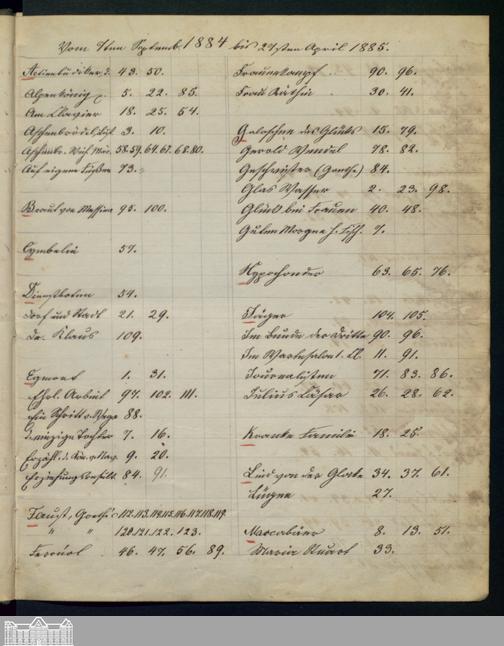 Vom 7ten Septemb. 1884 bis 27sten April 1885.
Actienbudiker d. 43. 50.
Alpenkönig p. 5. 22. 85.
Am Clavier 18. 25. 54.
Aschenbrödel 3. 10.
58. 59. 64. 67. 68. 80.
Auf eignen Füßen 73.
Braut von Messina 95. 100.
Cymbelin 57.
Dienstboten 54.
Dorf und Stadt 21. 29.
Dr. Klaus 109.
Egmont 1. 31.
Ehrl. Arbeit 97. 102. 111.
Ein Schritt v. Wege 88.
d. einzige Tochter 7. 16.
Erzähl. d. Kön. v. Nav. 9. 20.
84. 91.
Faust, Goethe 112. 113. 114. 115. 116. 117. 118. 119.
" " 120. 121. 122. 123.
46. 47. 56. 89.
Frauenkampf 90. 96.
Frau Räthin 30. 41.
Galoschen des Glücks 15. 79.
Gerold Wendel 78. 82.
Geschwister (Goethe.) 84.
Glas Wasser 2. 23. 98.
Glück bei Frauen 40. 48.
Guten Morgen H. Fisch. 7.
Hypochonder 63. 65. 76.
Jäger 104. 105.
Im Bunde der Dritte 90. 96.
Im Wartesalon I. Cl. 11. 91.
Journalisten 71. 83. 86.
Julius Cäsar 26. 28. 62.
Kranke Familie 18. 25.
Lied von der Glocke 34. 37. 61.
Lügen 27.
Maccabäer 8. 13. 51.
Maria Stuart 33.